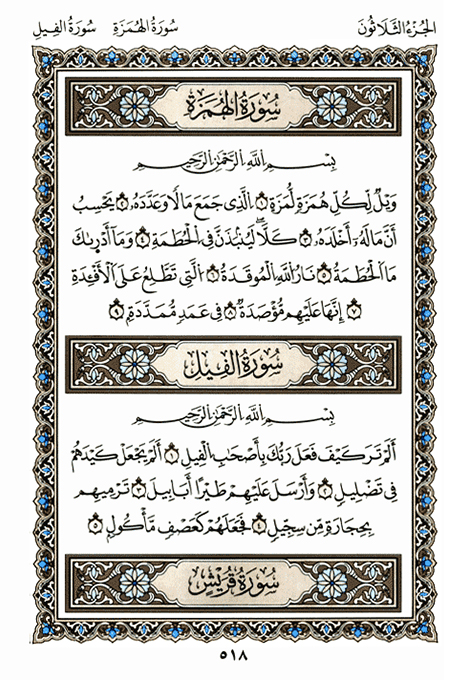 الجُزْءُ الثَّلَاثُونَ سُورَةُ الهُمَزَةِ سُورَةُ الفِيلِ
سُورَةُ الهُمَزَةِ
بِسْمِ اللَّهِ الرَّحْمَٰنِ الرَّحِيمِ
وَيْلٌ لِّكُلِّ هُمَزَةٍ لُّمَزَةٍ ١ الَّذِي جَمَعَ مَالًا وَعَدَّدَهُۥ ٢ يَحْسَبُ
أَنَّ مَالَهُۥٓ أَخْلَدَهُۥ ٣ كَلَّا ۖ لَيُنۢبَذَنَّ فِي الْحُطَمَةِ ٤ وَمَآ أَدْرَىٰكَ
مَا الْحُطَمَةُ ٥ نَارُ اللَّهِ الْمُوقَدَةُ ٦ الَّتِي تَطَّلِعُ عَلَى الْأَفْـِٔدَةِ
٧ إِنَّهَا عَلَيْهِم مُّؤْصَدَةٌ ٨ فِي عَمَدٍ مُّمَدَّدَةٍ ٩
سُورَةُ الفِيلِ
بِسْمِ اللَّهِ الرَّحْمَٰنِ الرَّحِيمِ
أَلَمْ تَرَ كَيْفَ فَعَلَ رَبُّكَ بِأَصْحَٰبِ الْفِيلِ ١ أَلَمْ يَجْعَلْ كَيْدَهُمْ
فِي تَضْلِيلٍ ٢ وَأَرْسَلَ عَلَيْهِمْ طَيْرًا أَبَابِيلَ ٣ تَرْمِيهِم
بِحِجَارَةٍ مِّن سِجِّيلٍ ٤ فَجَعَلَهُمْ كَعَصْفٍ مَّأْكُولٍ ٥
سُورَةُ قُرَيْشٍ
٥١٨